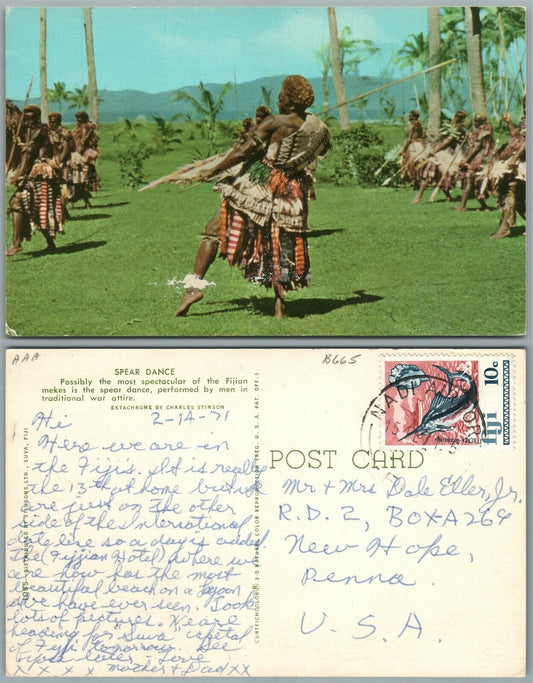 AAA
B665
SPEAR DANCE
Possibly the most spectacular of the Fijian
mekes is the spear dance, performed by men in
traditional war attire.
EKTACHROME BY CHARLES STINSON
2-14-71
Hi
Here we are in
the Fiji's. It is really
the 13th at home but we
are just on the other
side of the International
date line so a day is added
The (Fijian Hotel) where we
are now has the most
beautiful beach on a lagoon
we have ever seen. Took
lots of pictures. We are
heading for "Suva" capital
of Fiji tomorrow. See
later - Love
x x x x Mother + Dad xx
DISTRIBUTED BY STINSONS, LTD., SUVA, FIJI
CURTEICHCOLOR® 3-D NATURAL COLOR REPRODUCTION (REG. U. S. A. PAT. OFF.)
POST CARD
NADI AIRPORT
FIJI
10c
Mr. + Mrs Dale Eller, Jr.
R.D. 2, BOX-A264
New Hope,
Penna.
U.S.A.